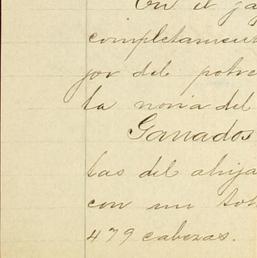 En el
completamen
jor del potre
la noria del
Ganados
las del ahija
con un tot
479 cabezas.